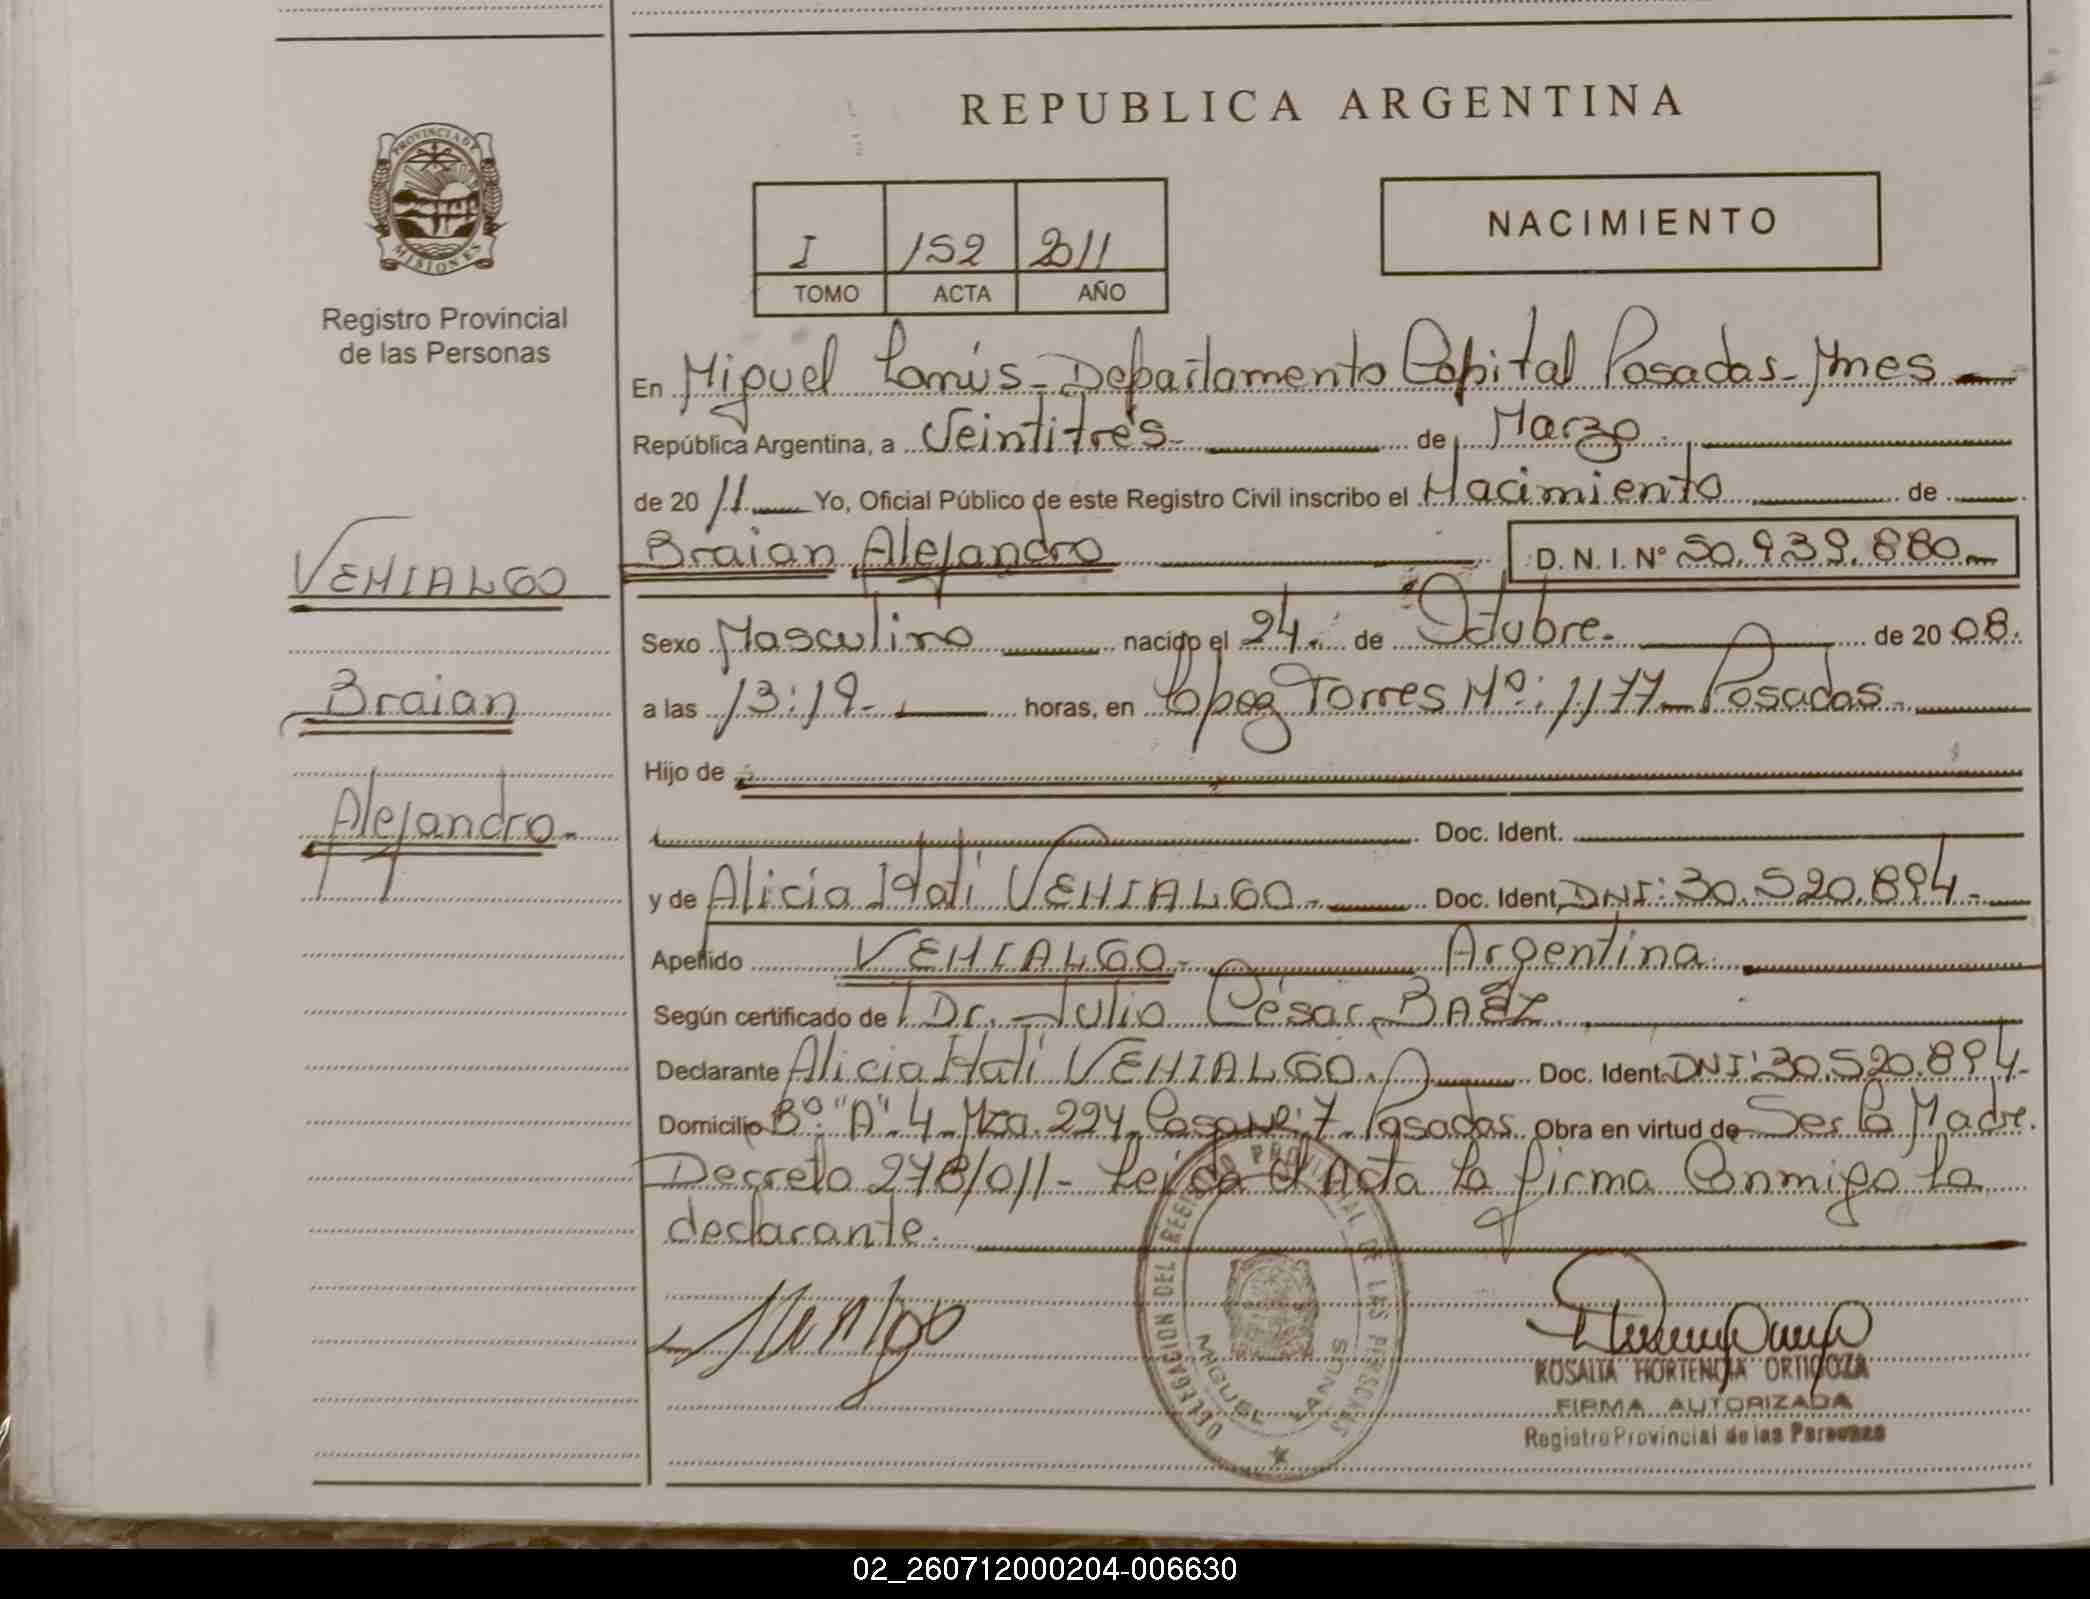 REPUBLICA ARGENTINA
PROVINCIA DE
MISIONES
Registro Provincial
de las Personas
I 152 2011
TOMO ACTA AÑO
NACIMIENTO
En Miguel Lanús - Departamento Capital Posadas - Mnes
República Argentina, a Veintitrés - de Marzo
de 20 11 Yo, Oficial Público de este Registro Civil inscribo el Nacimiento de
Braian Alejandro D. N. I. Nº 50.939.880
VENIALGO
Braian
Alejandro.
Sexo Masculino nacido el 24 de Octubre. de 20 08.
a las 13:19- horas, en López Torres Nº: 1177 - Posadas.
Hijo de
Doc. Ident.
y de Alicia Itatí VENIALGO. Doc. Ident. DNI: 30.520.894-
Apellido VENIALGO. Argentina.
Según certificado de Dr. Julio César BAEZ
Declarante Alicia Itatí VENIALGO. Doc. Ident. DNI: 30.520.894-
Domicilio Bº "A" 4 - Mza. 224, Casa Nº: 7 - Posadas. Obra en virtud de Ser la Madre.
Decreto 278/011 - Leída el Acta la firma Conmigo la
declarante.
DELEGACION DEL REGISTRO PROVINCIAL DE LAS PERSONAS
MIGUEL LANUS
ROSALIA HORTENCIA ORTIGOZA
FIRMA AUTORIZADA
Registro Provincial de las Personas
02_260712000204-006630